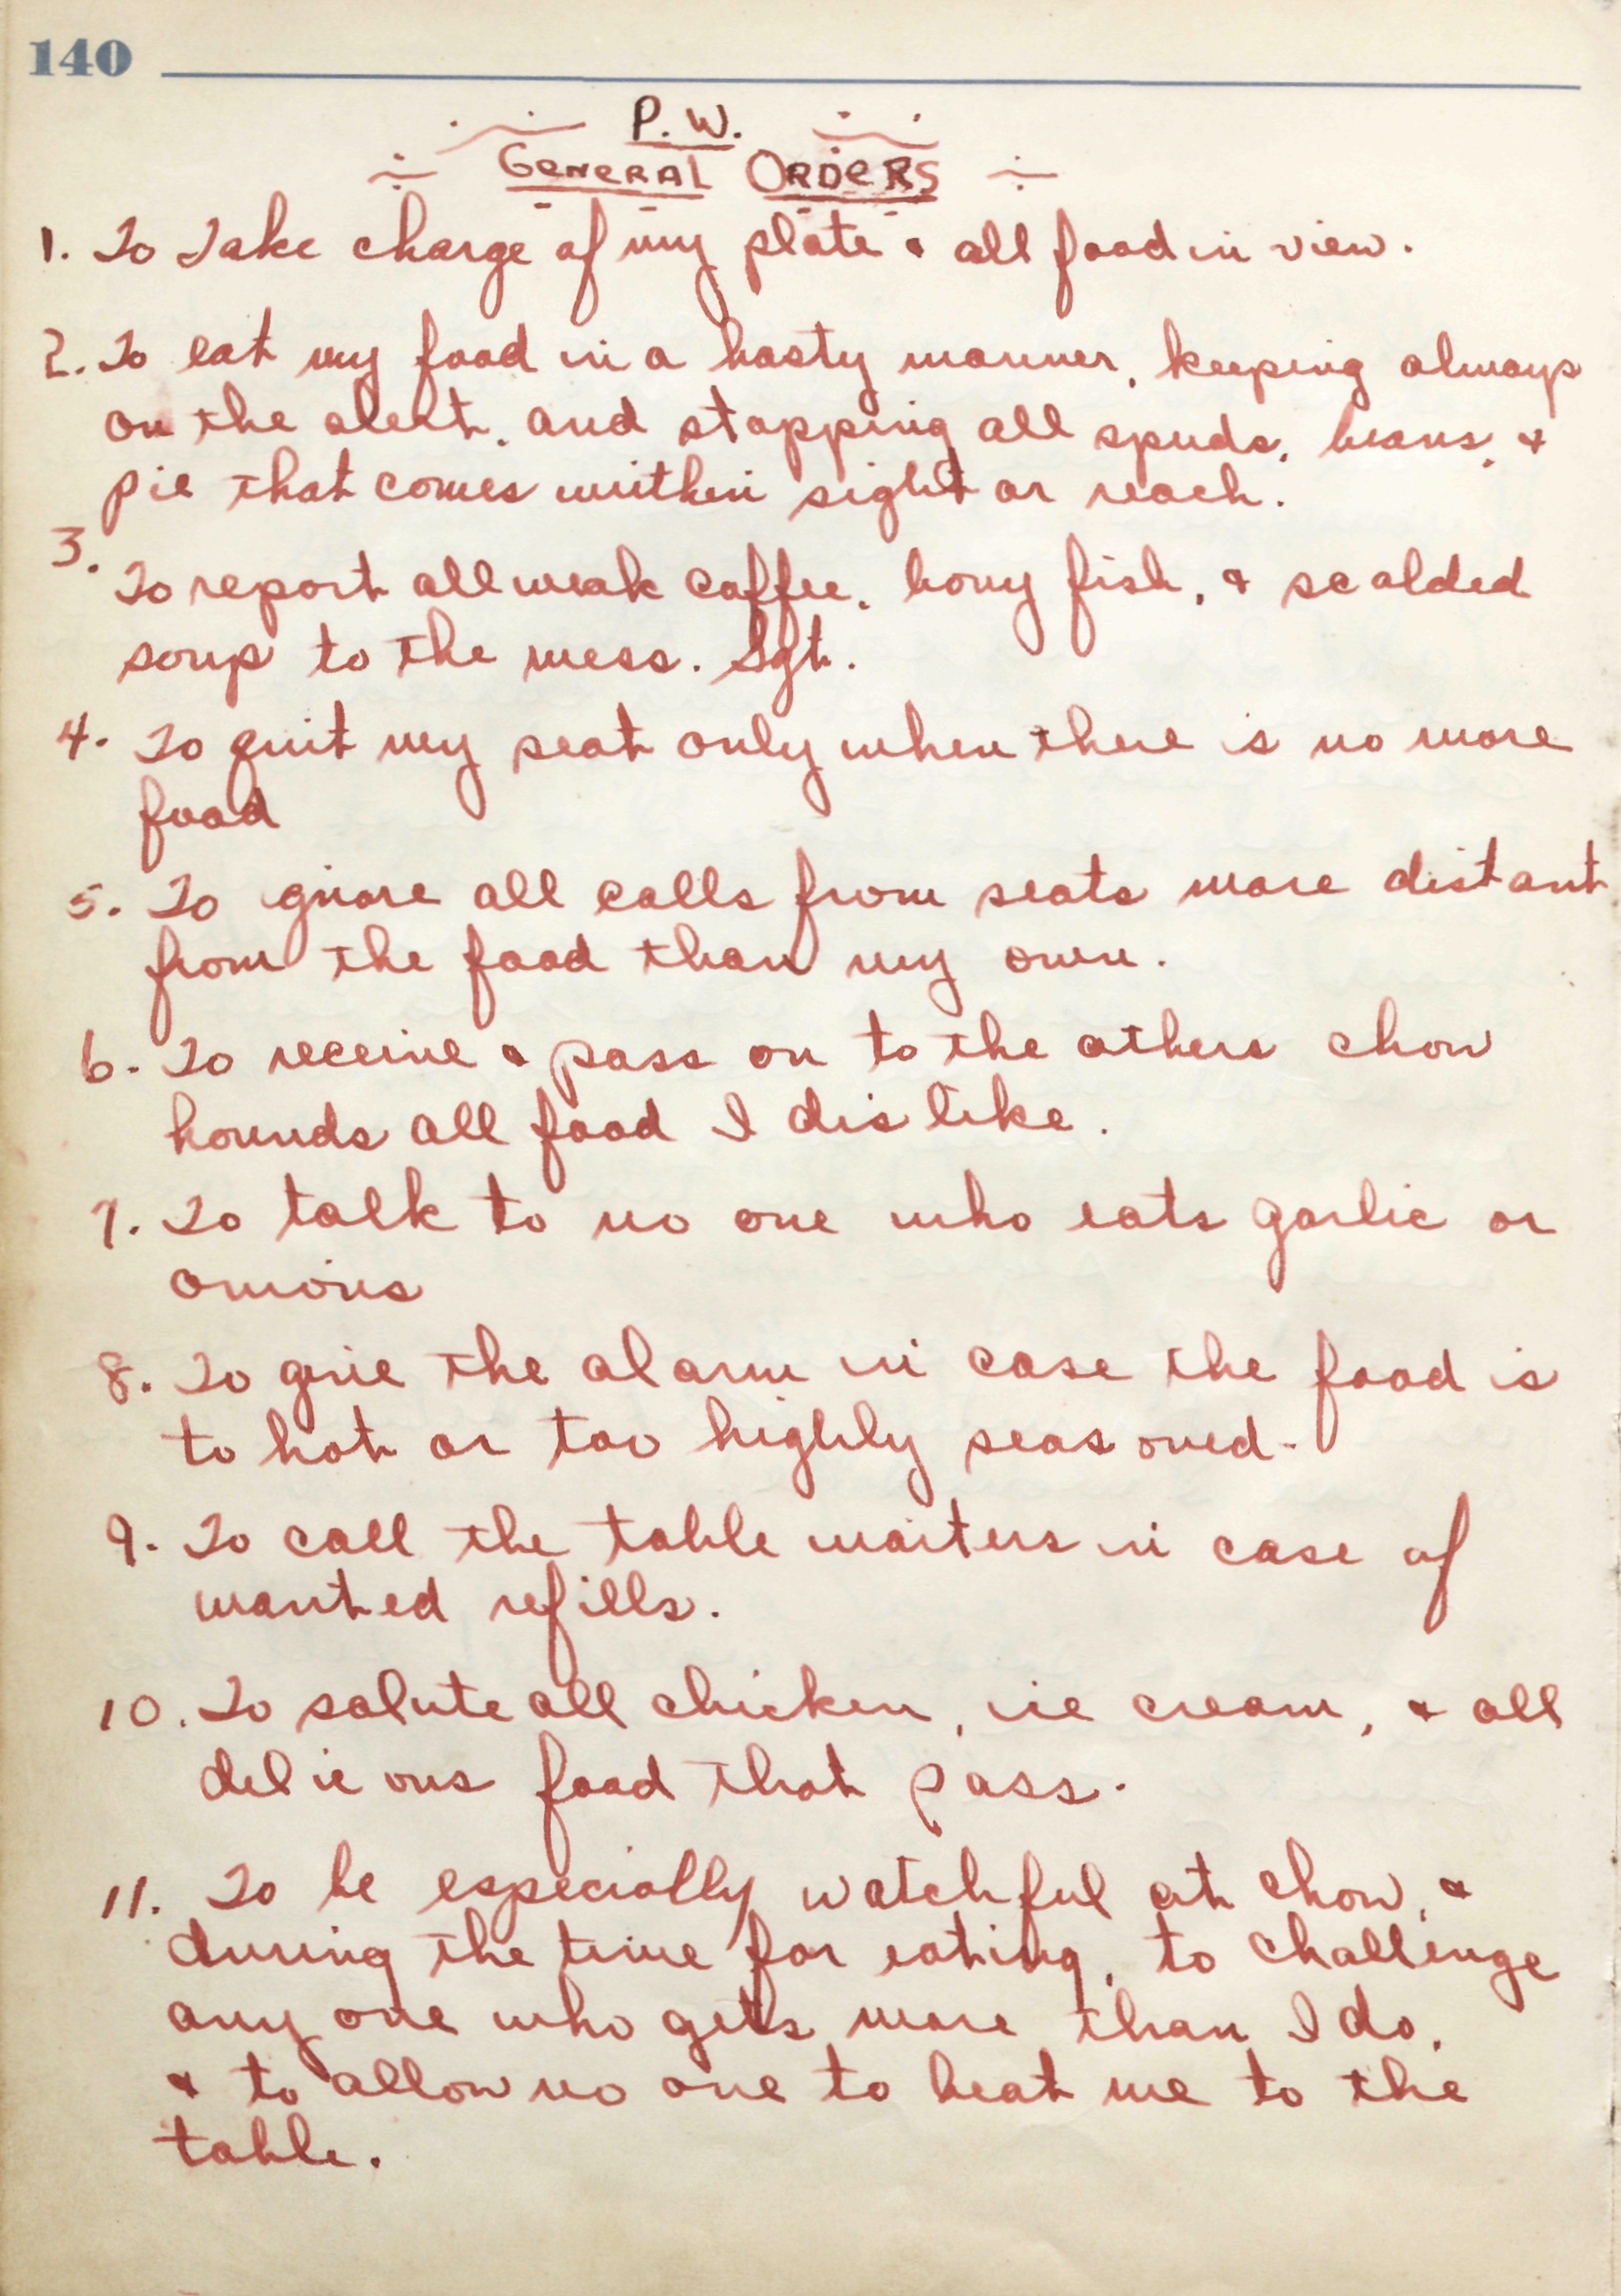 140
P.W.
GENERAL ORDERS
1. To Take charge of my plate & all food in view.
2. To eat my food in a hasty manner, keeping always
on the alert, and stopping all spuds, beans, &
pie that comes within sight or reach.
3.
To report all weak coffee, bony fish, & scalded
soup to the mess. Sgt.
4. To quit my seat only when there is no more
food
5. To ignore all calls from seats more distant
from the food than my own.
6. To receive & pass on to the others chow
hounds all food I dislike.
7. To talk to no one who eats garlic or
onions
8. To give the alarm in case the food is
to hot or too highly seasoned.
9. To call the table waiters in case of
wanted refills.
10. To salute all chicken, ice cream, & all
delicious food that pass.
11. To be especially watchful at chow, &
during the time for eating, to challenge
any one who gets more than I do,
& to allow no one to beat me to the
table.